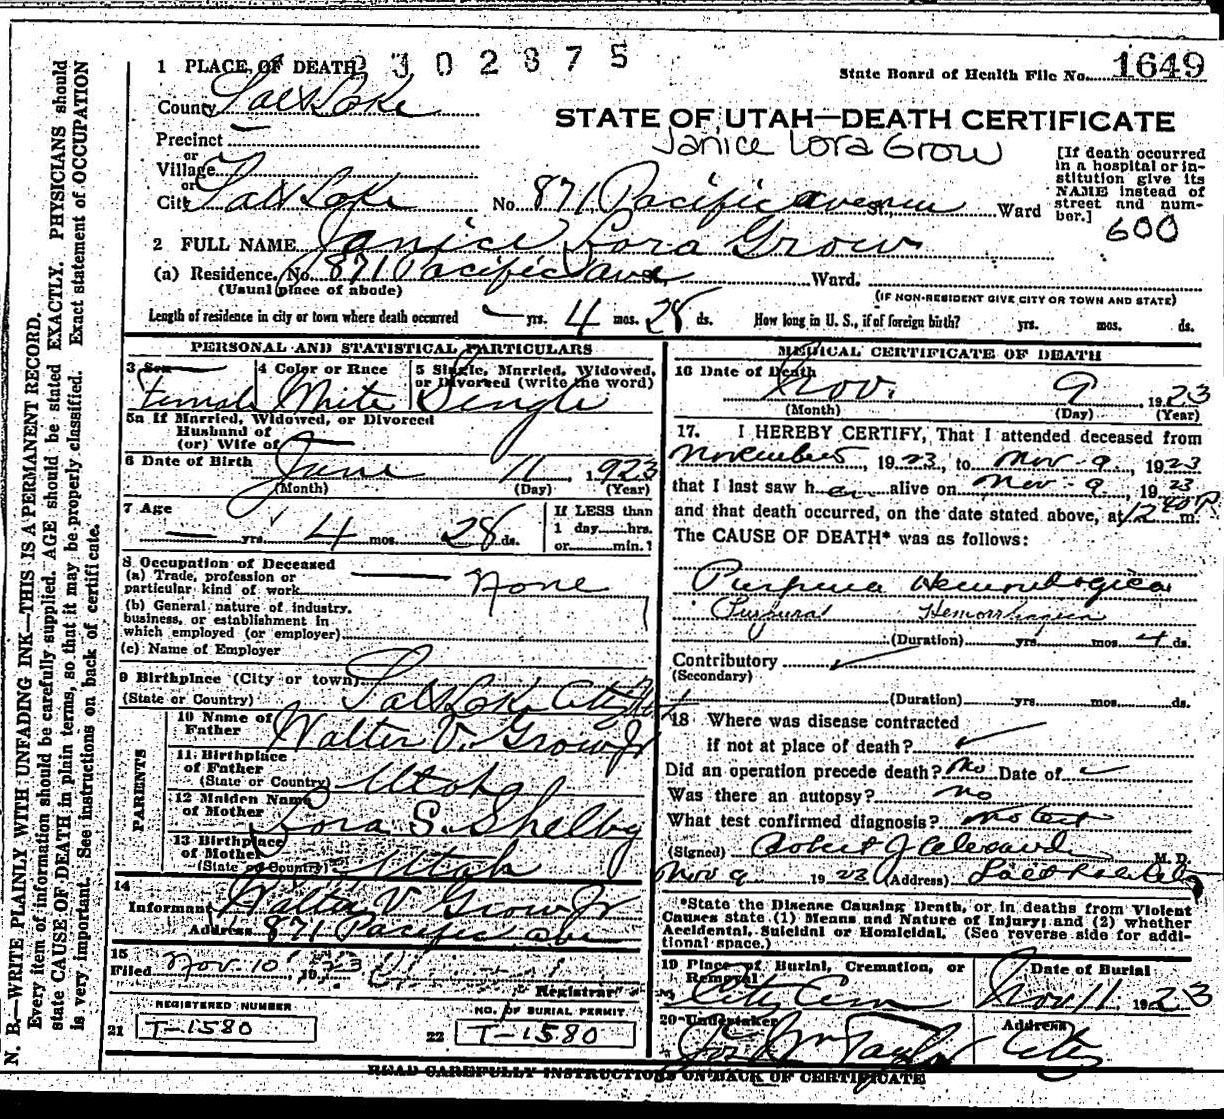 302875
State Board of Health File No. 1649
1 PLACE OF DEATH
County Salt Lake
STATE OF UTAH—DEATH CERTIFICATE
Janice Lora Grow
Precinct —
or
Village
or
City Salt Lake No. 871 Pacific avenue St., Ward
[If death occurred in a hospital or institution give its NAME instead of street and number.]
600
2 FULL NAME Janice Lora Grow
(a) Residence, No. 871 Pacific ave St., Ward.
(Usual place of abode)
(IF NON-RESIDENT GIVE CITY OR TOWN AND STATE)
Length of residence in city or town where death occurred — yrs. 4 mos. 28 ds. How long in U. S., if of foreign birth? yrs. mos. ds.
PERSONAL AND STATISTICAL PARTICULARS
3 Sex
Female
4 Color or Race
White
5 Single, Married, Widowed, or Divorced (write the word)
Single
5a If Married, Widowed, or Divorced
Husband of
(or) Wife of —
6 Date of Birth June 11 1923
(Month) (Day) (Year)
7 Age
— yrs. 4 mos. 28 ds.
If LESS than
1 day hrs.
or min.?
8 Occupation of Deceased
(a) Trade, profession or
particular kind of work — None
(b) General nature of industry,
business, or establishment in
which employed (or employer)
(c) Name of Employer
9 Birthplace (City or town)
(State or Country) Salt Lake City
PARENTS
10 Name of
Father Walter V. Grow Jr
11 Birthplace
of Father
(State or Country) Utah
12 Maiden Name
of Mother Lora S. Shelby
13 Birthplace
of Mother
(State or Country) Utah
14
Informant Walter V Grow Jr
Address 871 Pacific ave
15
Filed Nov. 10 1923
Registrar
REGISTERED NUMBER
21 T-1580
NO. OF BURIAL PERMIT
22 T-1580
MEDICAL CERTIFICATE OF DEATH
16 Date of Death
Nov. 9 1923
(Month) (Day) (Year)
17. I HEREBY CERTIFY, That I attended deceased from
November 5 1923, to Nov - 9, 1923
that I last saw her alive on Nov - 9, 1923
and that death occurred, on the date stated above, at 12 40 P. m.
The CAUSE OF DEATH* was as follows:
Purpura
Purpura Hemorrhagica
(Duration) yrs. mos. 4 ds.
Contributory
(Secondary)
(Duration) yrs. mos. ds.
18 Where was disease contracted
if not at place of death?
Did an operation precede death? No Date of
Was there an autopsy? no
What test confirmed diagnosis? no test
(Signed) Robert J Alexander M. D.
Nov 9 1923 (Address) Salt Lake
*State the Disease Causing Death, or in deaths from Violent
Causes state (1) Means and Nature of Injury; and (2) whether
Accidental, Suicidal or Homicidal. (See reverse side for addi-
tional space.)
19 Place of Burial, Cremation, or
Removal
City Cem
Date of Burial
Nov 11 1923
20 Undertaker
Jos. Wm Taylor
Address
City
READ CAREFULLY INSTRUCTIONS ON BACK OF CERTIFICATE
N. B.—WRITE PLAINLY WITH UNFADING INK—THIS IS A PERMANENT RECORD.
Every item of information should be carefully supplied. AGE should be stated EXACTLY. PHYSICIANS should
state CAUSE OF DEATH in plain terms, so that it may be properly classified. Exact statement of OCCUPATION
is very important. See instructions on back of certificate.